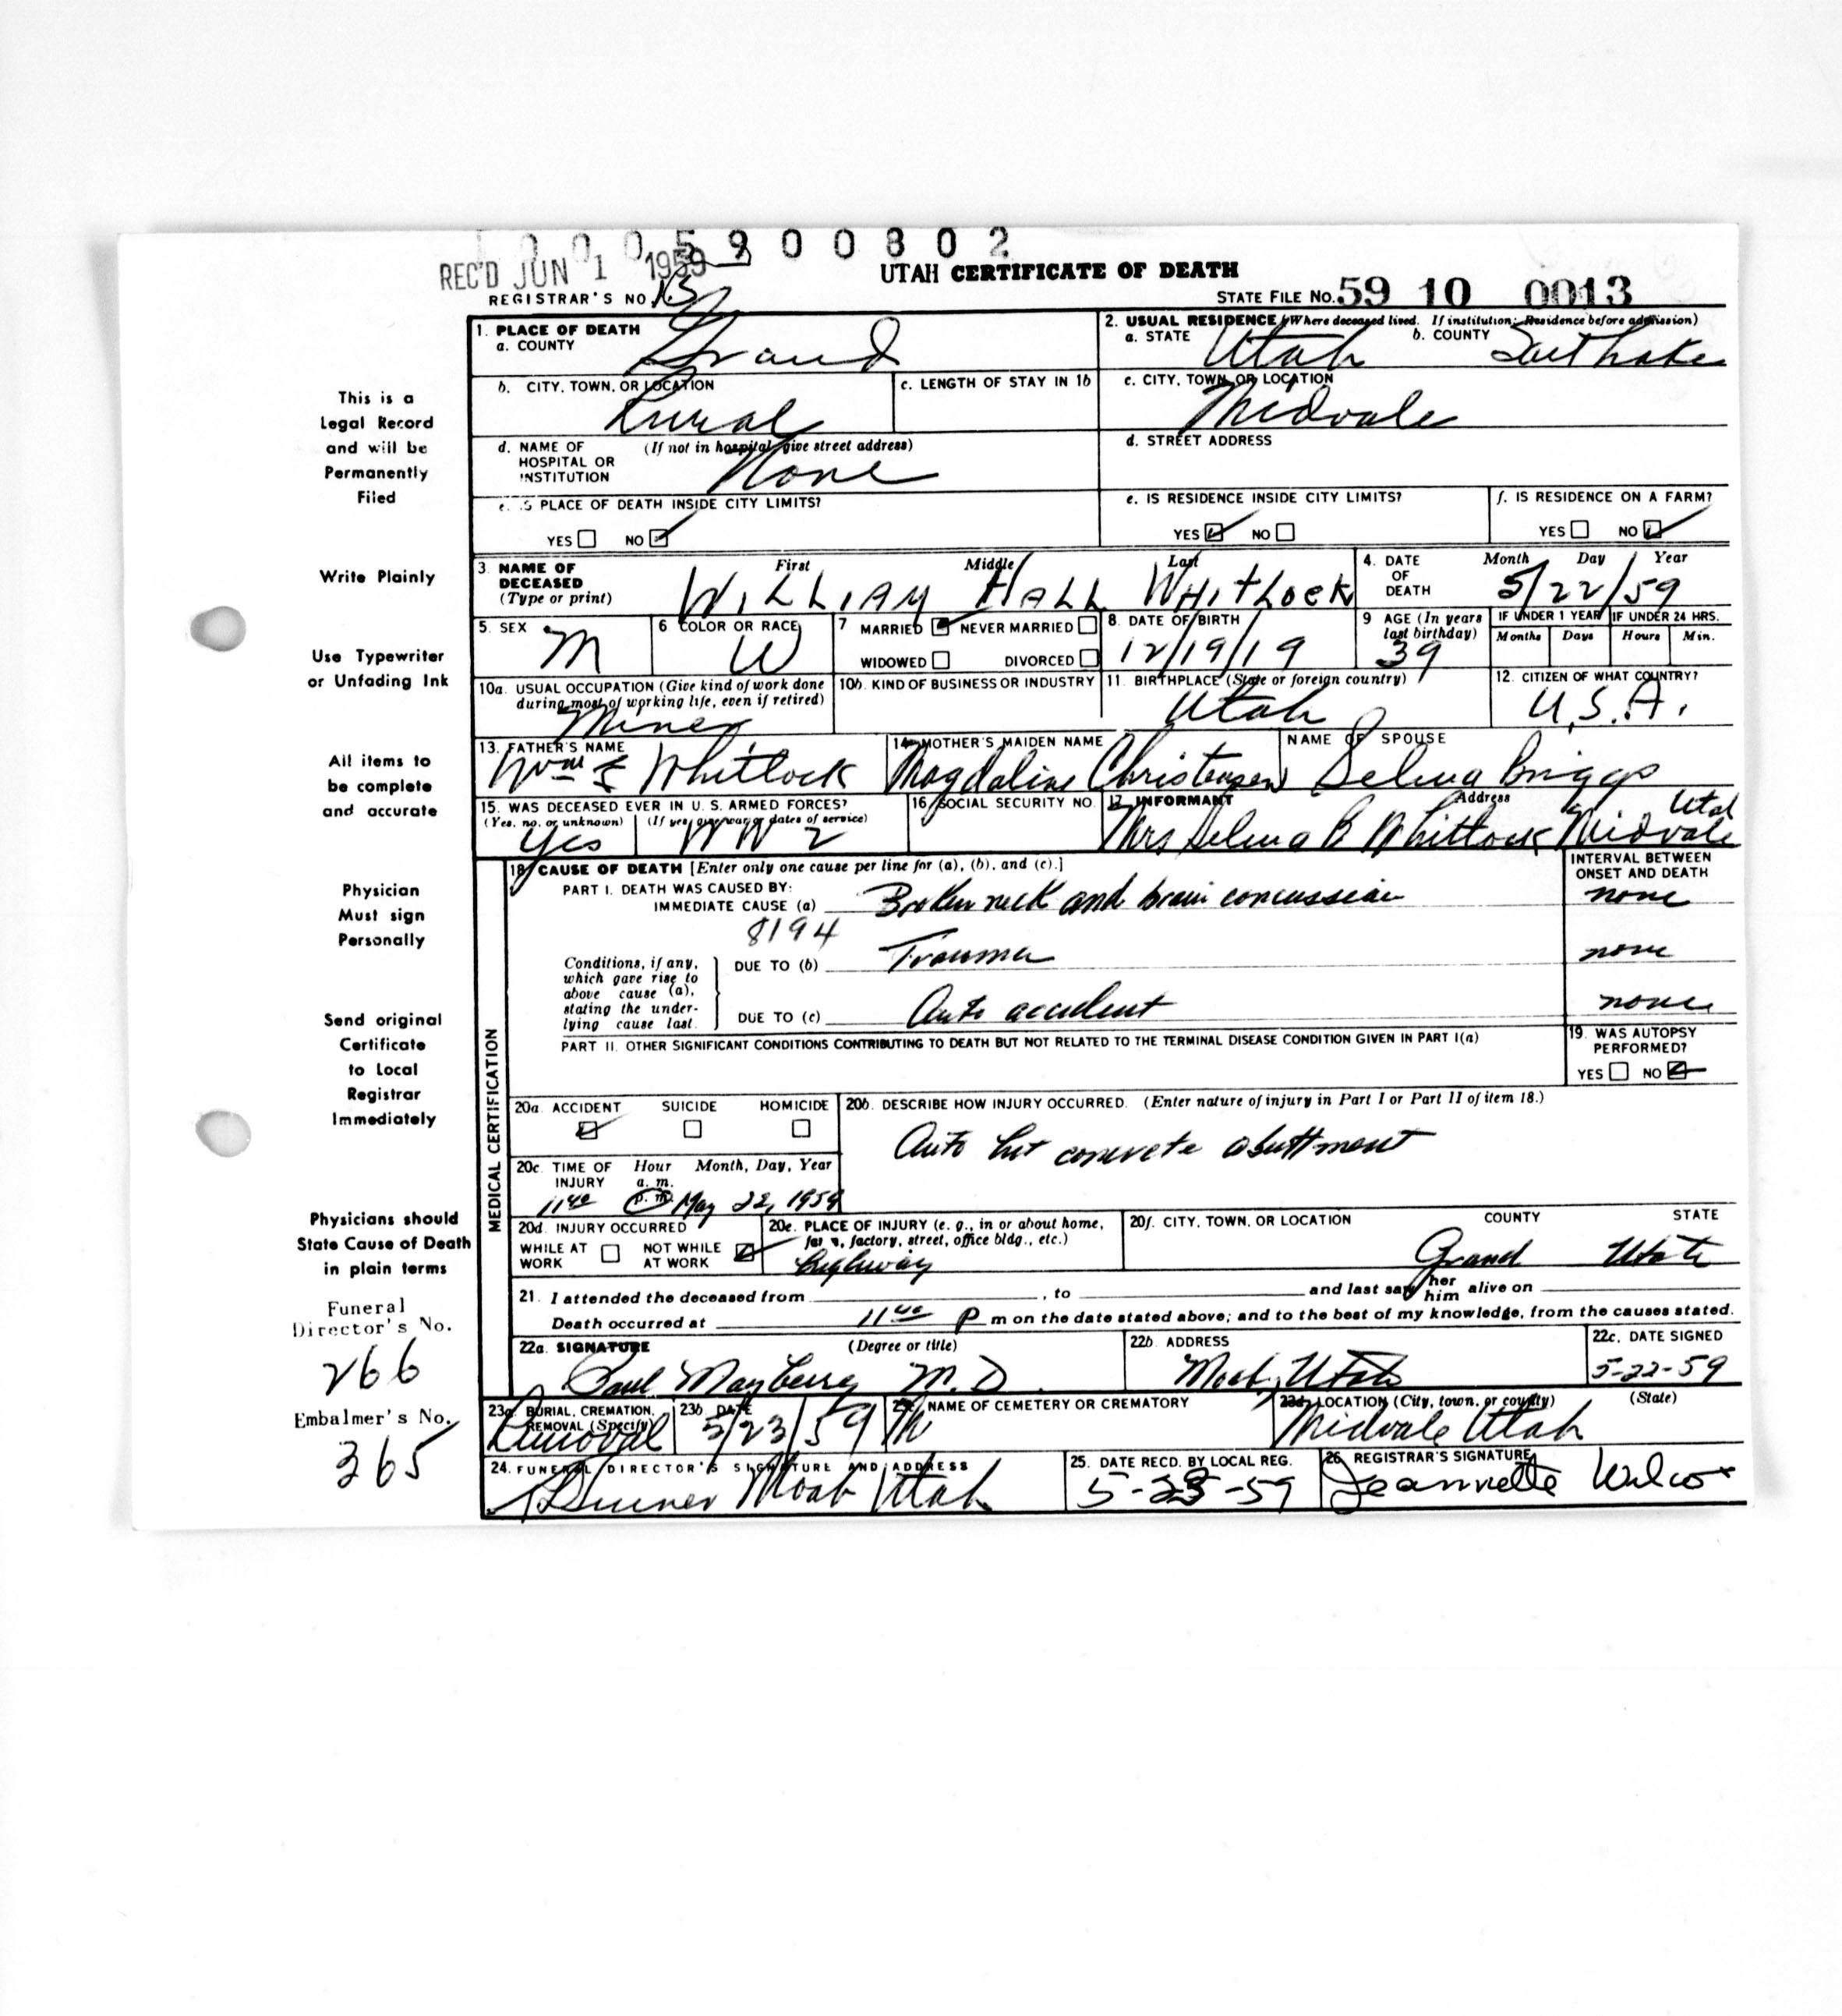 0005900802
REC'D JUN 1 1959
UTAH CERTIFICATE OF DEATH
REGISTRAR'S NO. 13
STATE FILE NO. 59 10 0013
This is a
Legal Record
and will be
Permanently
Filed
Write Plainly
Use Typewriter
or Unfading Ink
All items to
be complete
and accurate
Physician
Must sign
Personally
Send original
Certificate
to Local
Registrar
Immediately
Physicians should
State Cause of Death
in plain terms
Funeral
Director's No.
266
Embalmer's No.
365
1. PLACE OF DEATH
a. COUNTY Grand
2. USUAL RESIDENCE (Where deceased lived. If institution: Residence before admission)
a. STATE Utah b. COUNTY Salt Lake
b. CITY, TOWN, OR LOCATION Rural
c. LENGTH OF STAY IN 1b
c. CITY, TOWN, OR LOCATION Midvale
d. NAME OF HOSPITAL OR INSTITUTION (If not in hospital, give street address) None
d. STREET ADDRESS
e. IS PLACE OF DEATH INSIDE CITY LIMITS?
YES NO
e. IS RESIDENCE INSIDE CITY LIMITS?
YES NO
f. IS RESIDENCE ON A FARM?
YES NO
3. NAME OF DECEASED (Type or print) First Middle Last
WILLIAM HALL WHITLOCK
4. DATE OF DEATH Month Day Year
5/22/59
5. SEX M
6 COLOR OR RACE W
7 MARRIED NEVER MARRIED
WIDOWED DIVORCED
8. DATE OF BIRTH 12/19/19
9 AGE (In years last birthday) 39
IF UNDER 1 YEAR Months Days
IF UNDER 24 HRS. Hours Min.
10a. USUAL OCCUPATION (Give kind of work done during most of working life, even if retired) Miner
10b. KIND OF BUSINESS OR INDUSTRY
11. BIRTHPLACE (State or foreign country) Utah
12. CITIZEN OF WHAT COUNTRY? U.S.A.
13. FATHER'S NAME Wm Whitlock
14. MOTHER'S MAIDEN NAME Magdaline Christensen
NAME OF SPOUSE Selma Briggs
15. WAS DECEASED EVER IN U. S. ARMED FORCES?
(Yes, no, or unknown) (If yes, give war or dates of service)
Yes WW 2
16. SOCIAL SECURITY NO.
17. INFORMANT Address
Mrs Selma B Whitlock Midvale Utah
MEDICAL CERTIFICATION
18. CAUSE OF DEATH [Enter only one cause per line for (a), (b), and (c).]
INTERVAL BETWEEN ONSET AND DEATH
PART I. DEATH WAS CAUSED BY:
IMMEDIATE CAUSE (a) Broken neck and brain concussion none
8194
Conditions, if any, which gave rise to above cause (a), stating the underlying cause last.
DUE TO (b) Trauma none
DUE TO (c) Auto accident none
PART II. OTHER SIGNIFICANT CONDITIONS CONTRIBUTING TO DEATH BUT NOT RELATED TO THE TERMINAL DISEASE CONDITION GIVEN IN PART I(a)
19. WAS AUTOPSY PERFORMED?
YES NO
20a. ACCIDENT SUICIDE HOMICIDE
20b. DESCRIBE HOW INJURY OCCURRED. (Enter nature of injury in Part I or Part II of item 18.)
Auto hit concrete abuttment
20c. TIME OF INJURY Hour Month, Day, Year
a. m.
1140 p. m. May 22, 1959
20d. INJURY OCCURRED
WHILE AT WORK NOT WHILE AT WORK
20e. PLACE OF INJURY (e. g., in or about home, farm, factory, street, office bldg., etc.)
highway
20f. CITY, TOWN, OR LOCATION COUNTY STATE
Grand Utah
21. I attended the deceased from , to and last saw her him alive on
Death occurred at 1140 P m on the date stated above; and to the best of my knowledge, from the causes stated.
22a. SIGNATURE (Degree or title)
Paul Mayberry M.D.
22b. ADDRESS Moab, Utah
22c. DATE SIGNED 5-22-59
23a. BURIAL, CREMATION, REMOVAL (Specify) Removal
23b. DATE 5/23/59
23c. NAME OF CEMETERY OR CREMATORY
23d. LOCATION (City, town, or county) (State)
Midvale Utah
24. FUNERAL DIRECTOR'S SIGNATURE AND ADDRESS
Moab Utah
25. DATE RECD. BY LOCAL REG.
5-23-59
26. REGISTRAR'S SIGNATURE
Jeannette Wilcox